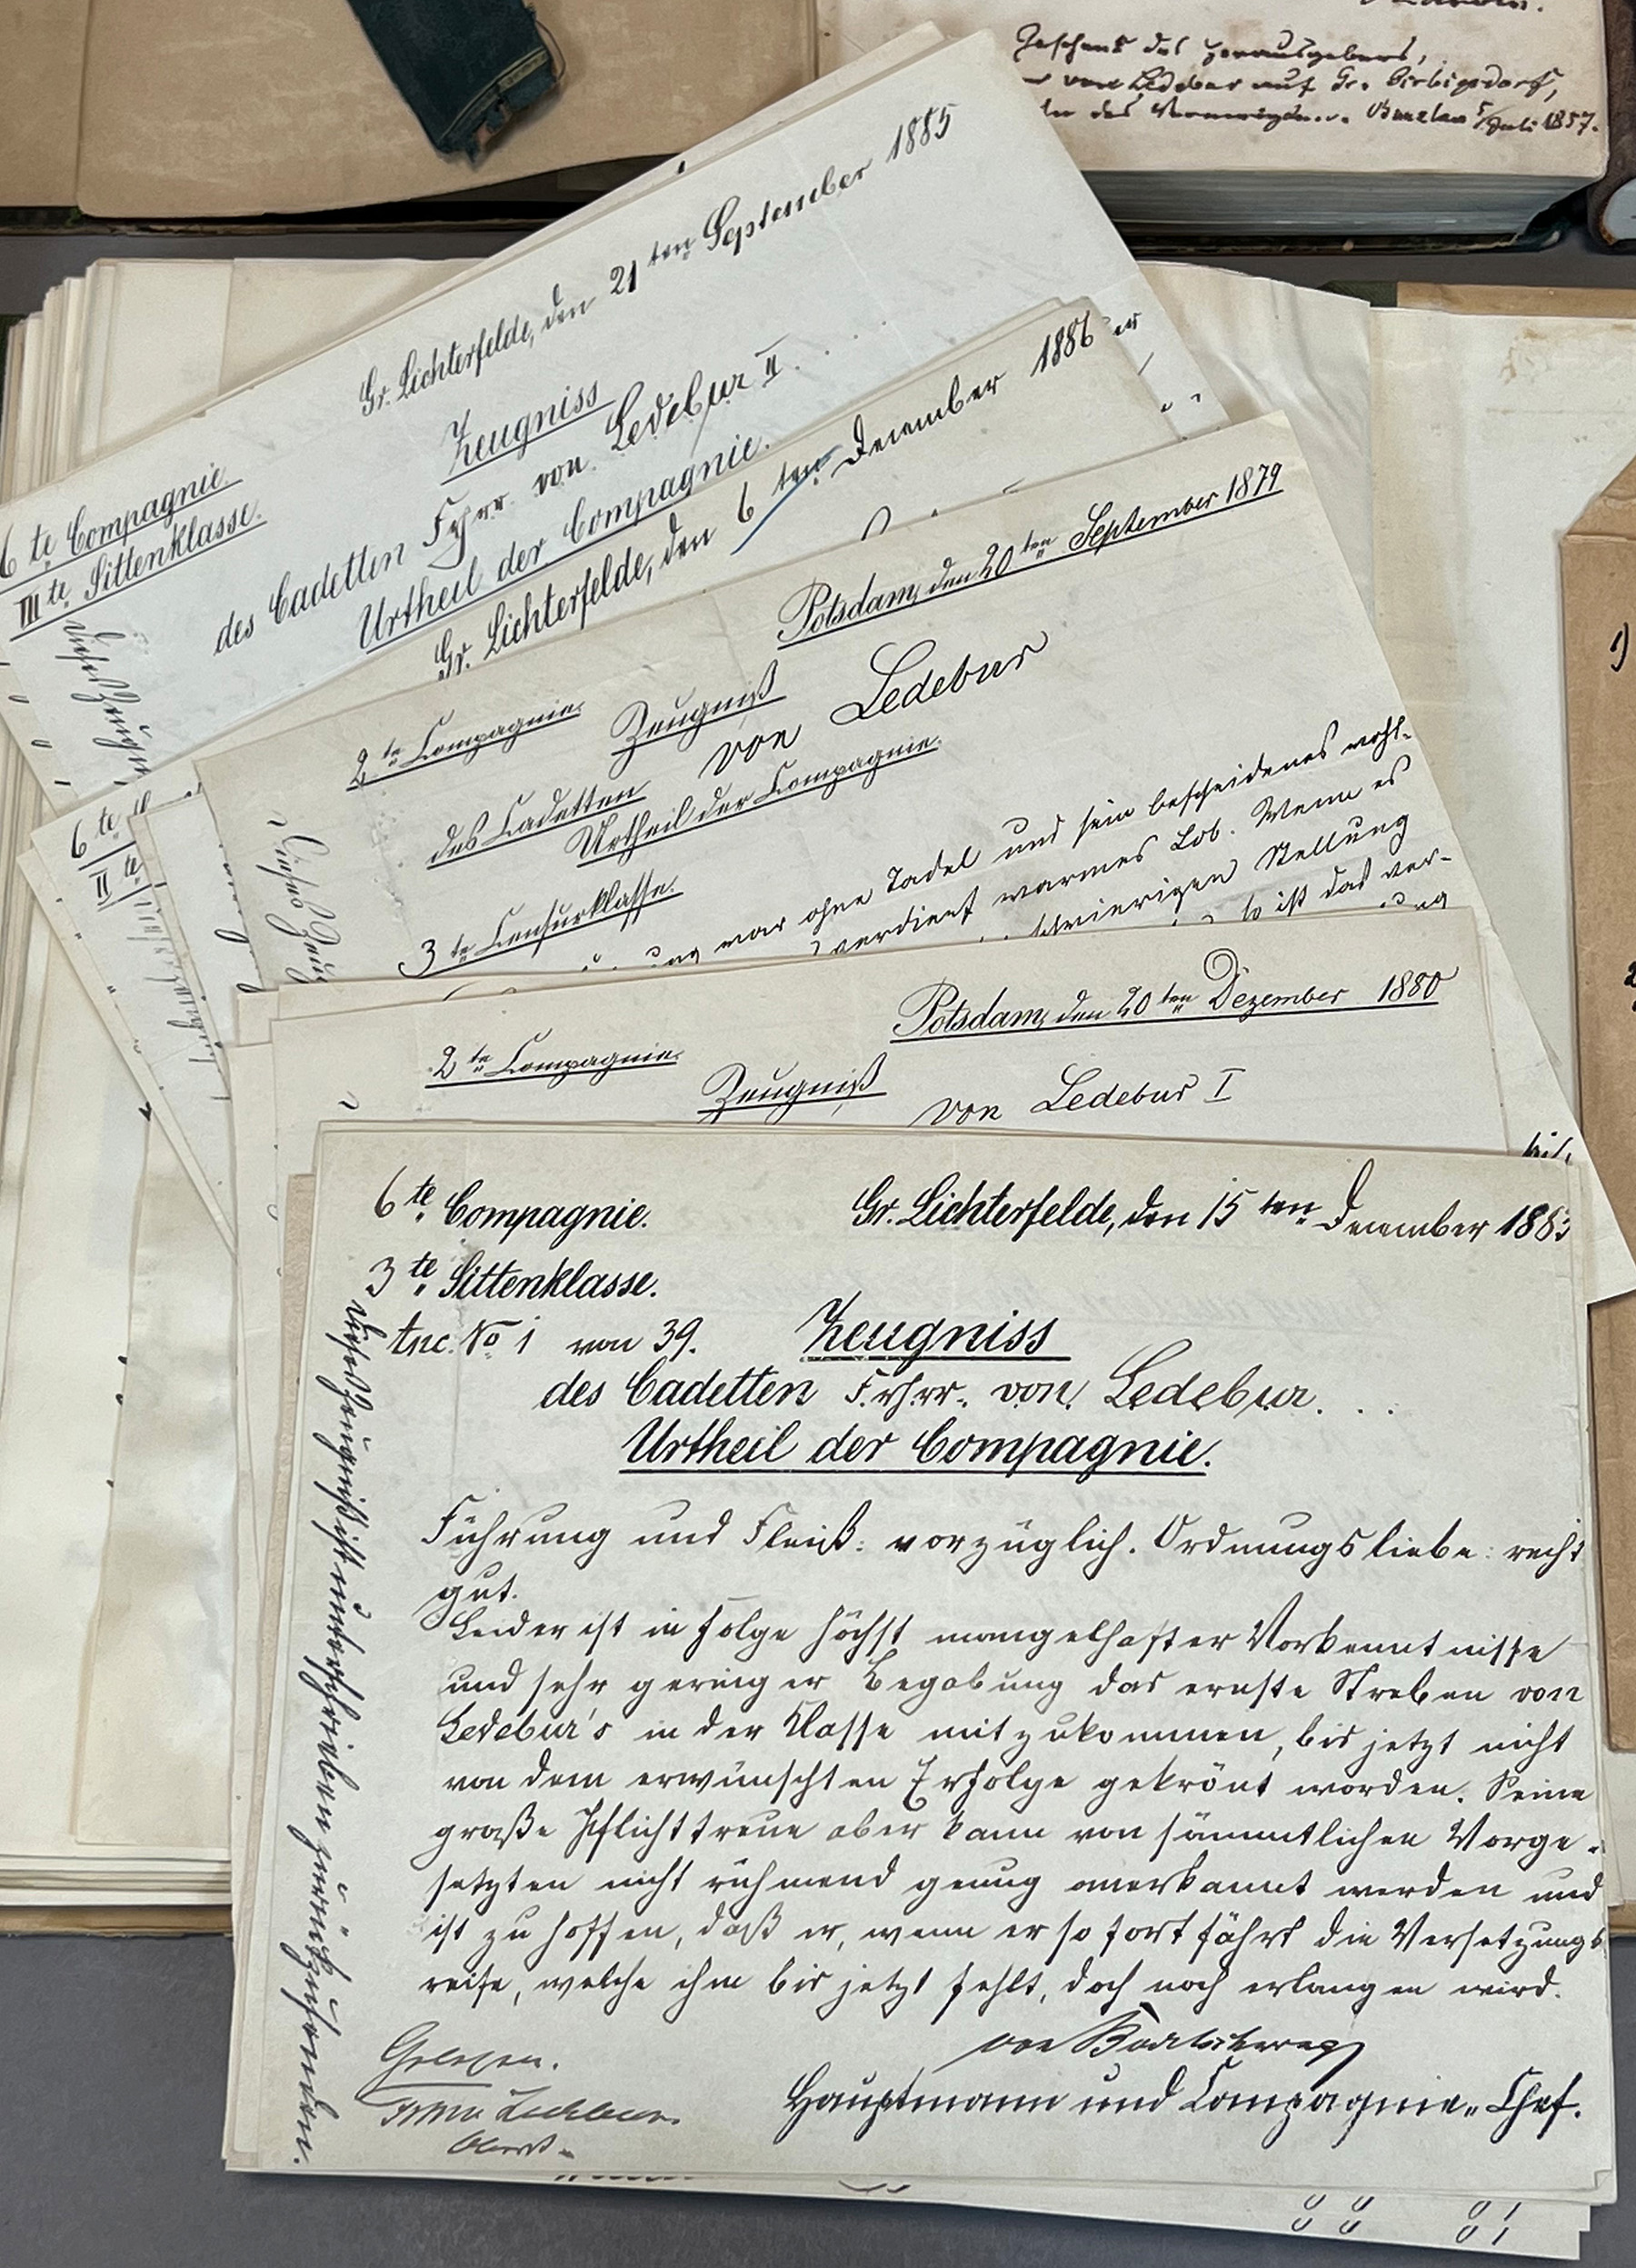 Geschenk des Herausgebers,
von Ledebur auf Gr.
des 5/Juli 1857.
Gr. Lichterfelde, den 21ten September 1885
6te Compagnie.
IIIte Sittenklasse.
Zeugniss
des Cadetten Frhrr. von Ledebur II.
Urtheil der Compagnie.
Gr. Lichterfelde, den 6ten December 1886
6te
IIte
Potsdam, den 20ten September 1879
2te Compagnie.
Zeugniß
des Cadetten von Ledebur
Urtheil der Compagnie.
3te Censurklasse.
war ohne Tadel und sein bescheidenes wohl-
verdient warmes Lob. Wenn es
schwierigen Stellung
so ist das ver-
Dieses Zeug
Potsdam, den 20ten Dezember 1880
2te Compagnie.
Zeugniß
von Ledebur I
6te Compagnie.
Gr. Lichterfelde, den 15ten December 188
3te Sittenklasse.
Loc. No 1 von 39.
Zeugniss
des Cadetten Frhrr. von Ledebur. . .
Urtheil der Compagnie.
Führung und Fleiß: vorzüglich. Ordnungsliebe: recht
gut.
Leider ist in Folge höchst mangelhafter Vorkenntnisse
und sehr geringer Begabung das ernste Streben von
Ledebur's in der Klasse mitzukommen, bis jetzt nicht
von dem erwünschten Erfolge gekrönt worden. Seine
große Pflichttreue aber kann von sämmtlichen Vorge-
setzten nicht rühmend genug anerkannt werden und
ist zu hoffen, daß er, wenn er so fortfährt die Versetzungs
reife, welche ihm bis jetzt fehlt, doch noch erlangen wird.
Hauptmann und Compagnie-Chef.
Gelesen.
Ledebur.
Oberst.
Dieses Zeugniß ist unterschrieben zurückzusenden.